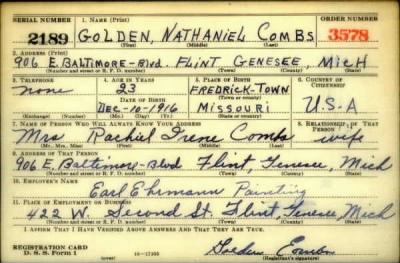 SERIAL NUMBER 1. NAME (Print) ORDER NUMBER
2189 GOLDEN, NATHANIEL COMBS 3578
(First) (Middle) (Last)
2. ADDRESS (Print)
906 E. BALTIMORE-Blvd. FLINT GENESEE, MICH
(Number and street or R. F. D. number) (Town) (County) (State)
3. TELEPHONE 4. AGE IN YEARS 5. PLACE OF BIRTH 6. COUNTRY OF CITIZENSHIP
none 23 FREDRICK-TOWN
DATE OF BIRTH (Town or county)
DEC-10-1916 MISSOURI U-S-A
(Exchange) (Number) (Mo.) (Day) (Yr.) (State or country)
7. NAME OF PERSON WHO WILL ALWAYS KNOW YOUR ADDRESS 8. RELATIONSHIP OF THAT PERSON
Mrs Rachiel Irene Combs wife
(Mr., Mrs., Miss) (First) (Middle) (Last)
9. ADDRESS OF THAT PERSON
906 E. Baltimore-Blvd Flint, Genesee, Mich
(Number and street or R. F. D. number) (Town) (County) (State)
10. EMPLOYER'S NAME
Earl Ehrmann Painting
11. PLACE OF EMPLOYMENT OR BUSINESS
422 W. Second St. Flint, Genesee, Mich
(Number and street or R. F. D. number) (Town) (County) (State)
I AFFIRM THAT I HAVE VERIFIED ABOVE ANSWERS AND THAT THEY ARE TRUE.
REGISTRATION CARD
D. S. S. Form 1 Golden Combs
(Registrant's signature)